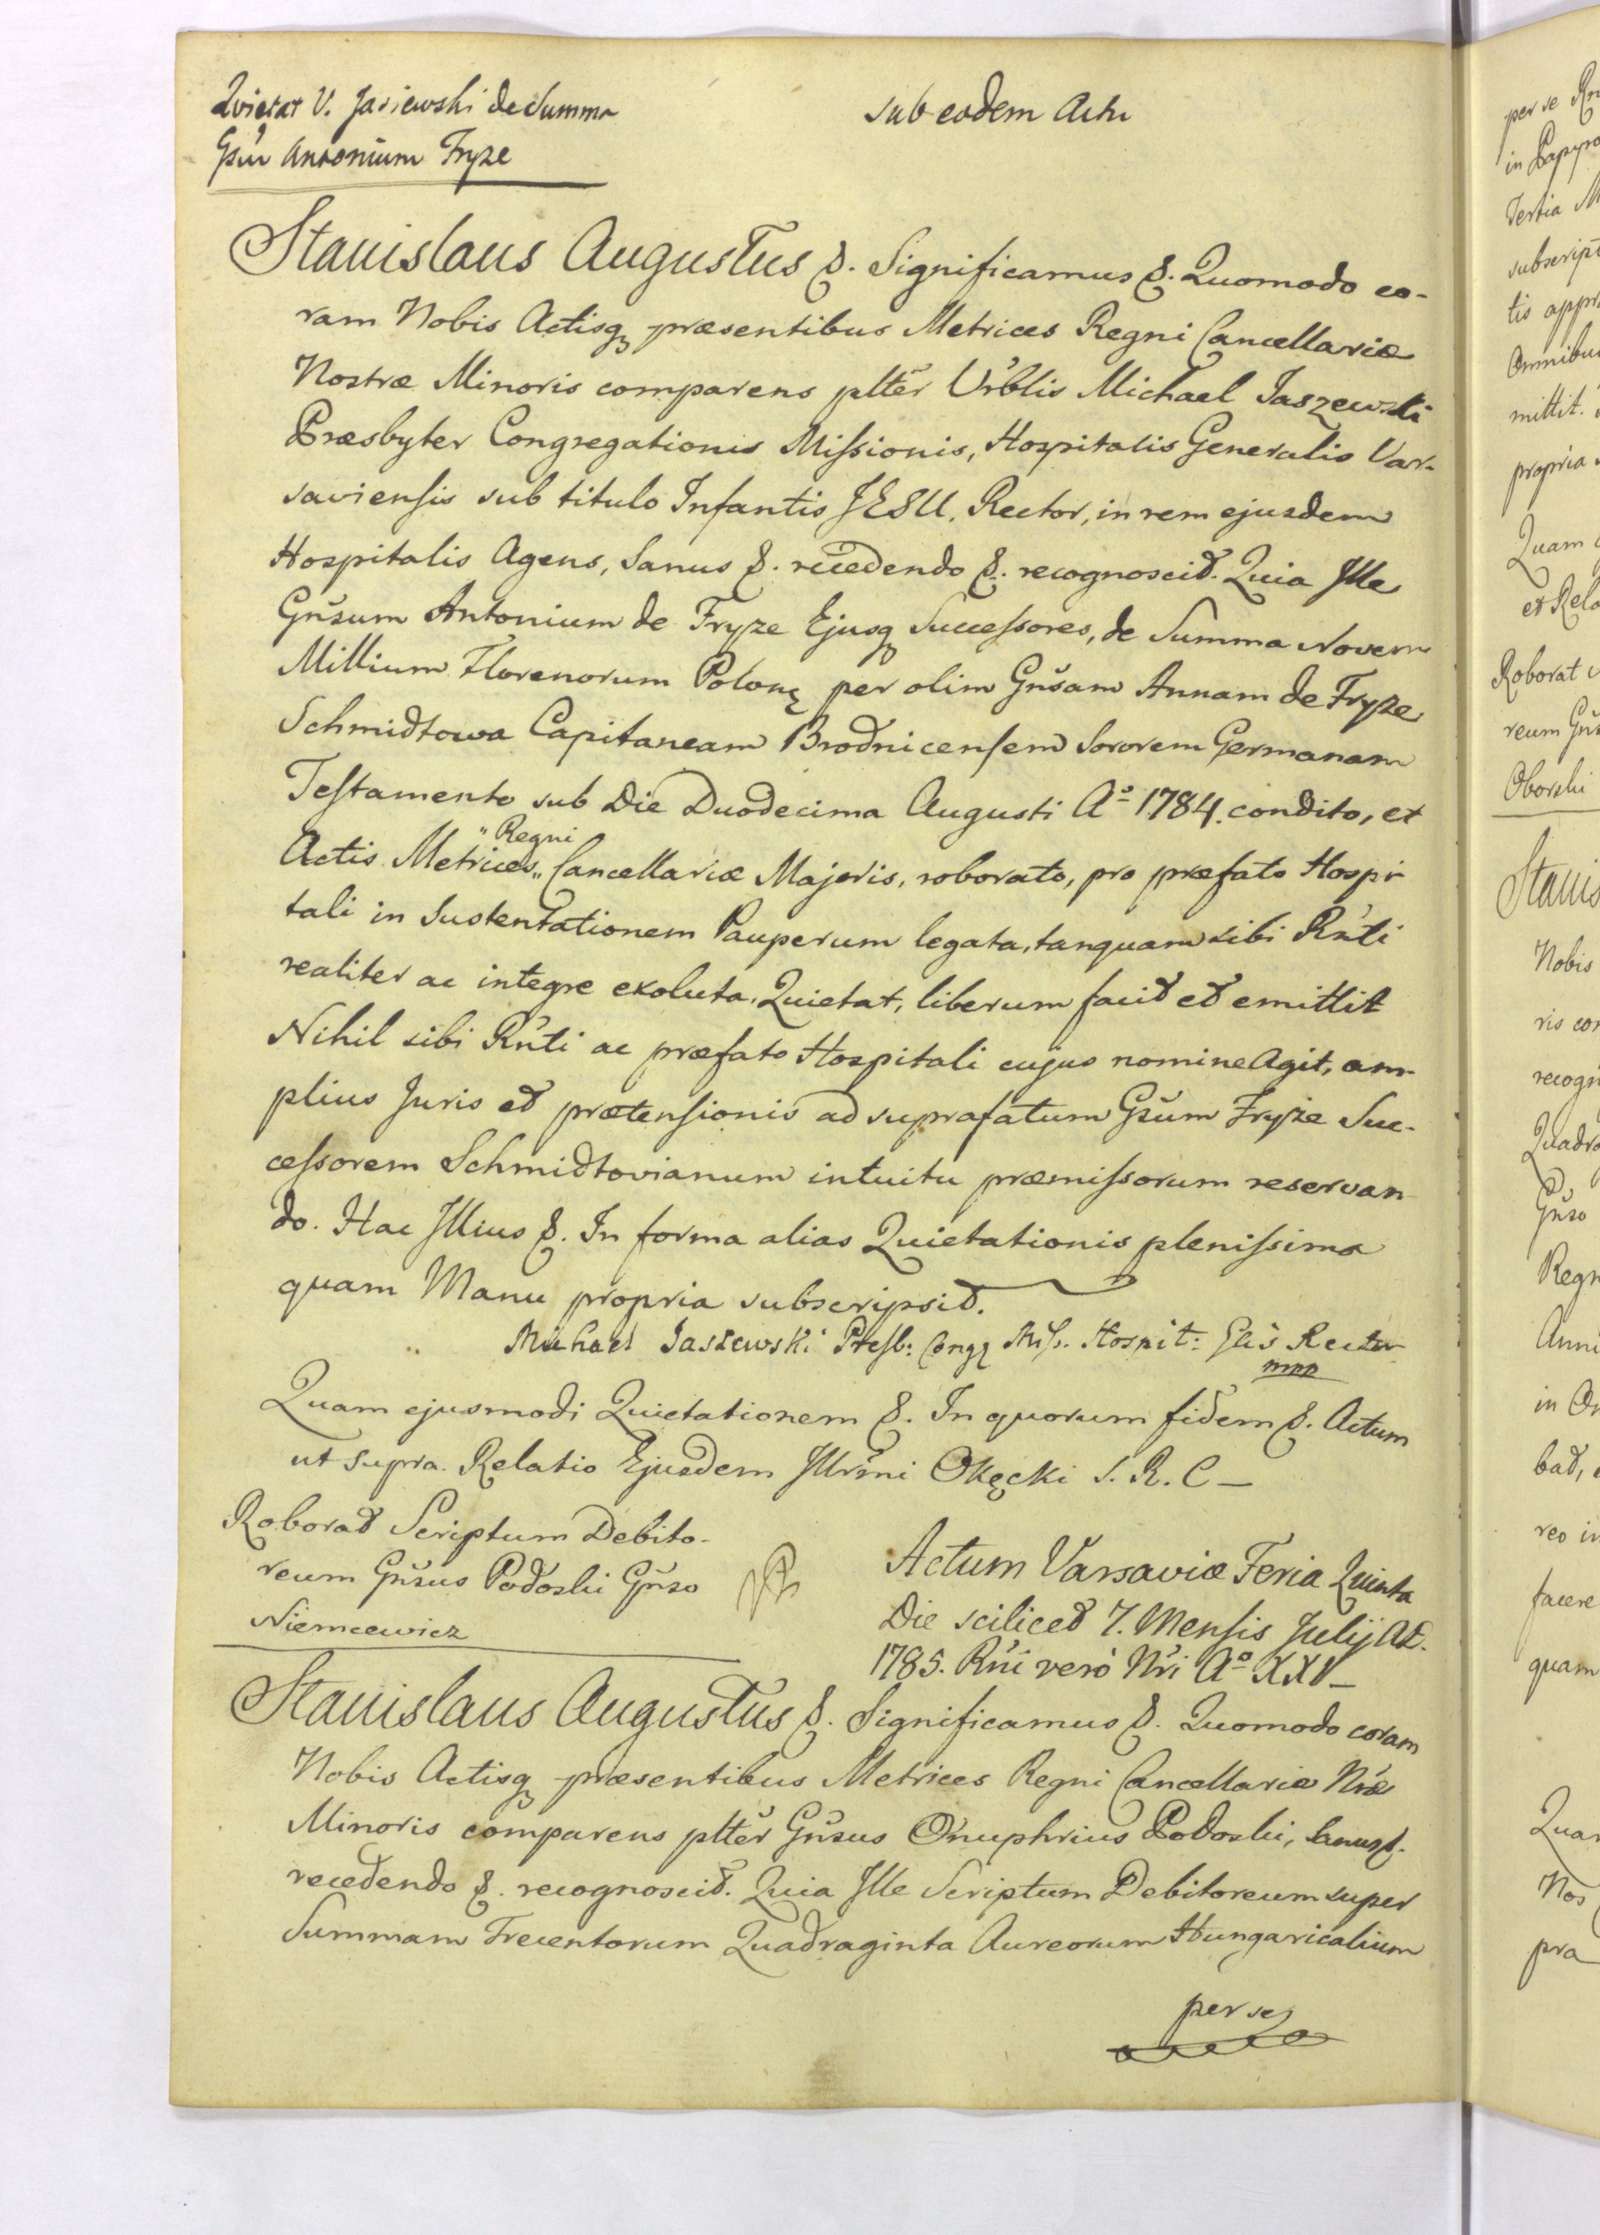 Quietat V. Jasiewski de Summa
Gsũ Antonium Fryze
sub eodem Actu
Stanislaus Augustus &. Significamus &. Quomodo co-
ram Nobis Actisq præsentibus Metrices Regni Cancellariæ
Nostræ Minoris comparens pltẽr Vrblis Michael Jaszewski
Præsbyter Congregationis Missionis, Hospitalis Generalis Var-
saviensis sub titulo Infantis JESU, Rector, in rem ejusdem
Hospitalis Agens, Sanus &. recedendo &. recognoscit. Quia Ille
Gñsum Antonium de Fryze Ejusq Successores, de Summa Novem
Millium Florenorum Polonę per olim Gñsam Annam de Fryze
Schmidtowa Capitaneam Brodnicensem Sororem Germanam
Testamento sub Die Duodecima Augusti Aº 1784. condito, et
Actis Metrices „Regni„ Cancellariæ Majoris, roborato, pro præfato Hospi-
tali in Sustentationem Pauperum legata, tanquam sibi Rñti
realiter ac integre exoluta, Quietat, liberum facit et emittit
Nihil sibi Rñti ac præfato Hospitali cujus nomine Agit, am-
plius Juris et prætensionis ad suprafatum Gsũm Fryże Suc-
cessorem Schmidtovianum intuitu præmissorum reservan-
do. Hac Illius &. In forma alias Quietationis plenissima
quam Manu propria subscripsit.
Michael Jaszewski Presb: Congę Miss. Hospit: Glis Rector
mpp
Quam ejusmodi Quietationem &. In quorum fidem &. Actum
ut supra. Relatio Ejusdem Illrm̃i Okęcki S. R. C –
Roborat Scriptum Debito-
reum Gñsus Podoski Gñso
Niemcewicz
Actum Varsaviæ Feria Quinta
Die scilicet 7. Mensis Julij AD.
1785. Rñi verò Nr̃i Aº XXI –
Stanislaus Augustus &. Significamus &. Quomodo coram
Nobis Actisq præsentibus Metrices Regni Cancellariæ Nr̃æ
Minoris comparens pltẽr Gñsus Onuphrius Podoski, Sanus &.
recedendo &. recognoscit. Quia Ille Scriptum Debitoreum super
Summam Trecentorum Quadraginta Aureorum Hungaricalium
per se
per se
in Papyro
Tertia
subscript
tis
Omnibu
mittit.
propria
Quam
et Rela
Roborat
reum Gñs
Oborski
Stanis
Nobis
ris con
recogn
Quadra
Gñso
Regn
Anni
in
bat,
reo in
facere
quam
Quam
Nos
pra